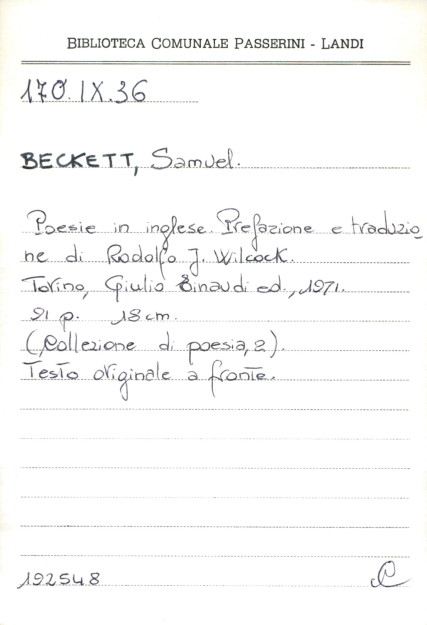 BIBLIOTECA COMUNALE PASSERINI - LANDI
170.IX.36
BECKETT, Samuel.
Poesie in inglese. Prefazione e traduzio
ne di Rodolfo J. Wilcock.
Torino, Giulio Einaudi ed., 1971.
91 p. 18 cm.
(Collezione di poesia, 2).
Testo originale a fronte.
192548